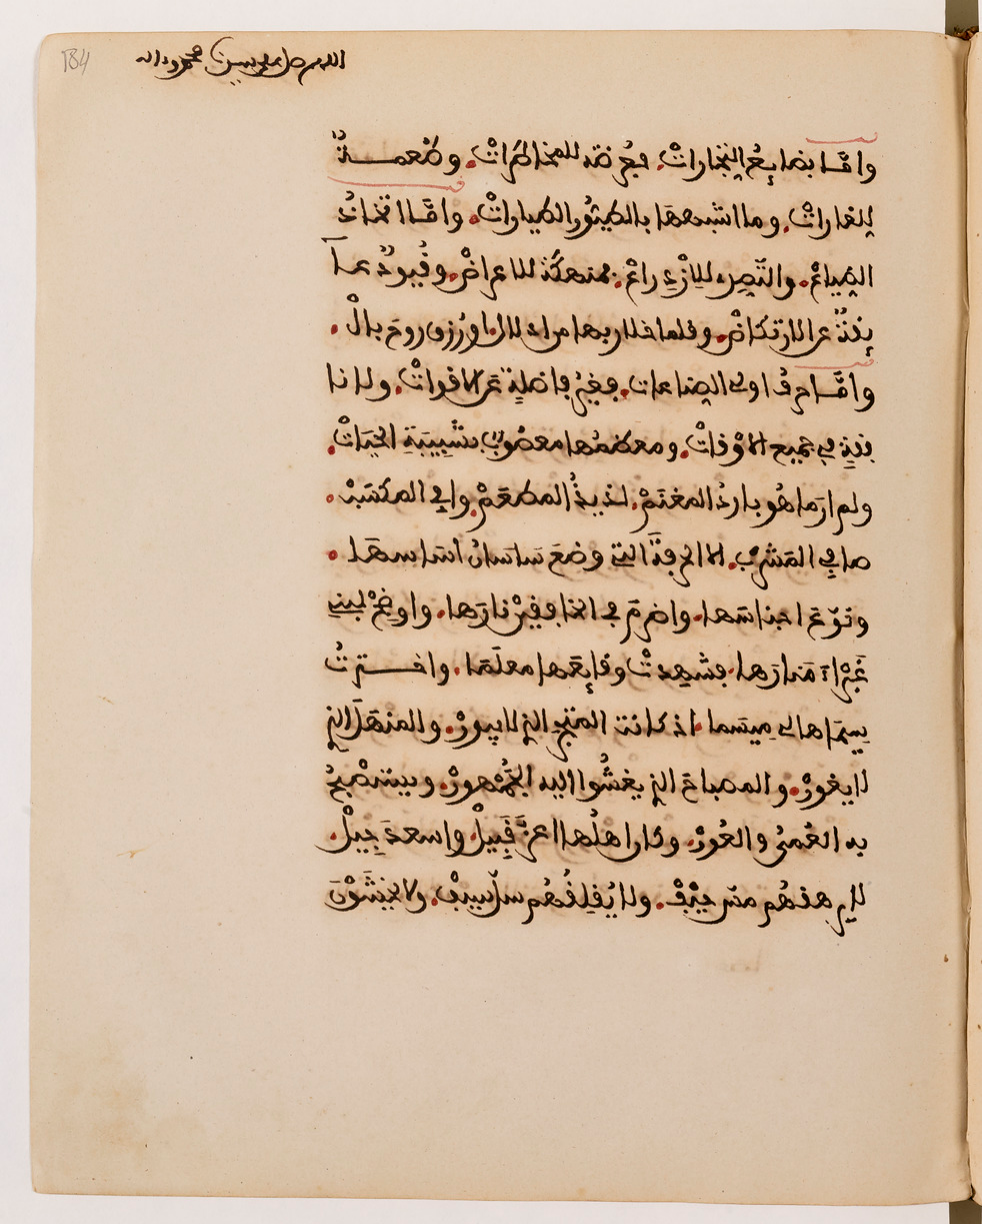 184
اللهم صل على سيدنا محمد وءاله
وامّا بضايعُ التِّجاراتْ. فعُرضة للمخاطراتْ. وطُعمــةٌ
لِلغاراتْ. وما اشبهها بالطيُورِ الطياراتْ. وامّا اتخاذُ
الضِياعْ. والتّصدى للاِزْدِراعْ. فمنهكة للاعراضْ. وقُيودٌ عا
ىِٕقةٌ عن الارتكاضْ. وقلما خلا ربها من اذلال. او رُزق روحَ بالْ.
وامّا حرفُ اولى الصناعات. فغيرُ فاضلةٍ عن الاقواتْ. ولا نا
فقةٍ في جميع الاوْقاتْ. ومعظمُها معصُوبٌ بشَبِيبَةِ الحيَاتْ.
ولم ارَ ما هُو باردُ المغنَمْ. لذيذُ المطعَمْ. وافِي المكسَبْ.
صافِي المَشربْ. الا الحرفةَ التي وضعَ سَاسَانُ اسَاسهَا.
ونوّعَ اجناسَها. واضرمَ في الخافقيْن نارَها. واوضحْ لبنى
غَبْراءَ مَنارَها. فشهِدتْ وقايِٕعَها معلَما. واختــرتُ
سِيمَاها لى مِيسَما. اذ كانت المتجرَ الذي لا يبورْ. والمنهَلَ الذي
لا يغورْ. والمصباحَ الذي يعْشُوا اليه الجُمْهورْ. ويستصْبحُ
به العُمىُ والعُورْ. وكان اهلُها اعزَّ قَبِيلْ. واسعدَ جِيلْ.
لا يرهقهُم مسّ حيْفْ. ولا يُقلِقُهُم سلّ سيفْ. ولا يخشَوْنَ